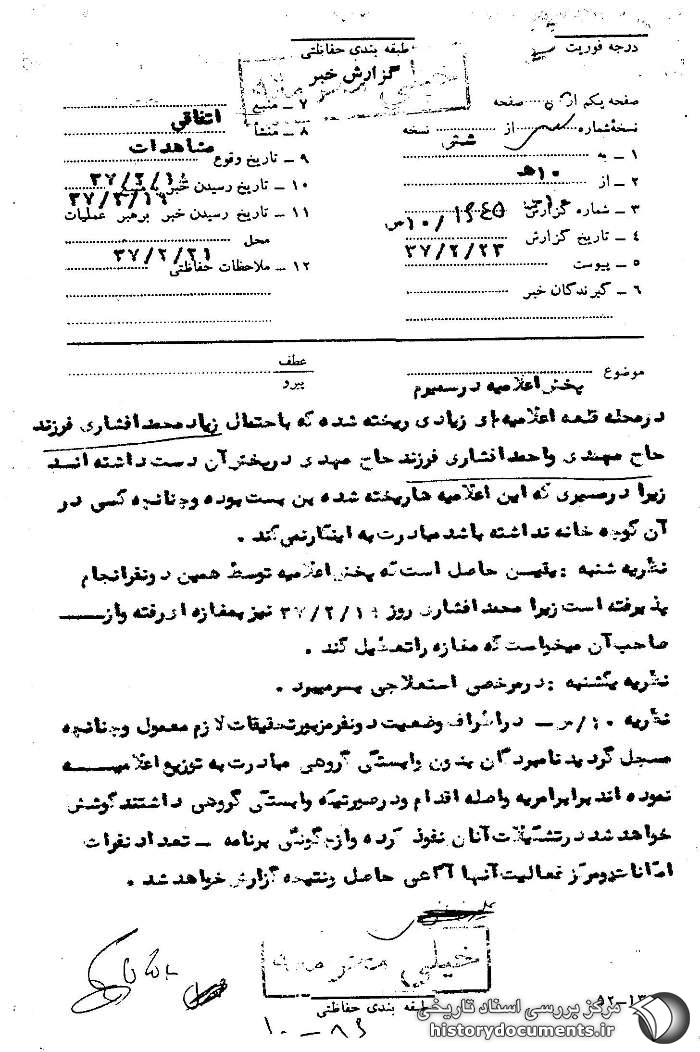 درجه فوریت
طبقه بندی حفاظتی
خیلی محرمانه
گزارش خبر
صفحه یکم از صفحه
نسخهٔ شماره از نسخه
۱ ـ به
۲ ـ از ۱۰ هـ
۳ ـ شماره گزارش
۴ ـ تاریخ گزارش ۳۷/۲/۲۳
۵ ـ پیوست
۶ ـ گیرندگان خبر
۷ ـ منبع اتفاقی
۸ ـ منشأ مشاهدات
۹ ـ تاریخ وقوع
۱۰ ـ تاریخ رسیدن خبر به منبع
۱۱ ـ تاریخ رسیدن خبر برهبر عملیات
محل ۳۷/۲/۲۱
۱۲ ـ ملاحظات حفاظتی
عطف
پیرو
موضوع پخش اعلامیه در سمیرم
در محله قلعه اعلامیه‌ای زیادی ریخته شده که با حتمال زیاد محمد افشاری فرزند
حاج مهدی و احمد افشاری فرزند حاج مهدی در پخش آن دست داشته اند
زیرا در مسیری که این اعلامیه ها ریخته شده بن بست بوده و چنانچه کسی در
آن کوچه خانه نداشته باشد مبادرت به اینکار نمی کند .
نظریه شنبه : یقین حاصل است که پخش اعلامیه توسط همین دو نفر انجام
پذیرفته است زیرا محمد افشاری روز ۳۷/۲/۱۹ نیز بمغازه ای رفته و از
صاحب آن میخواست که مغازه را تعطیل کند .
نظریه یکشنبه : در مرخصی استعلاجی بسر میبرد .
نظریه ۱۰/س ـ در اطراف وضعیت دو نفر مزبور تحقیقات لازم معمول و چنانچه
مسجل گردید نامبردگان بدون وابستگی گروهی مبادرت به توزیع اعلامیه
نموده اند برابر امریه واصله اقدام و در صورتیکه وابستگی گروهی داشتند کوشش
خواهد شد در تشکیلات آنان نفوذ کرده و از چگونگی برنامه ـ تعداد نفرات
امکانات و مرکز فعالیت آنها آگاهی حاصل و نتیجه گزارش خواهد شد .
خیلی محرمانه
طبقه بندی حفاظتی
۵۲-۱۳
۱۰-۸۹
مرکز بررسی اسناد تاریخی
historydocuments.ir